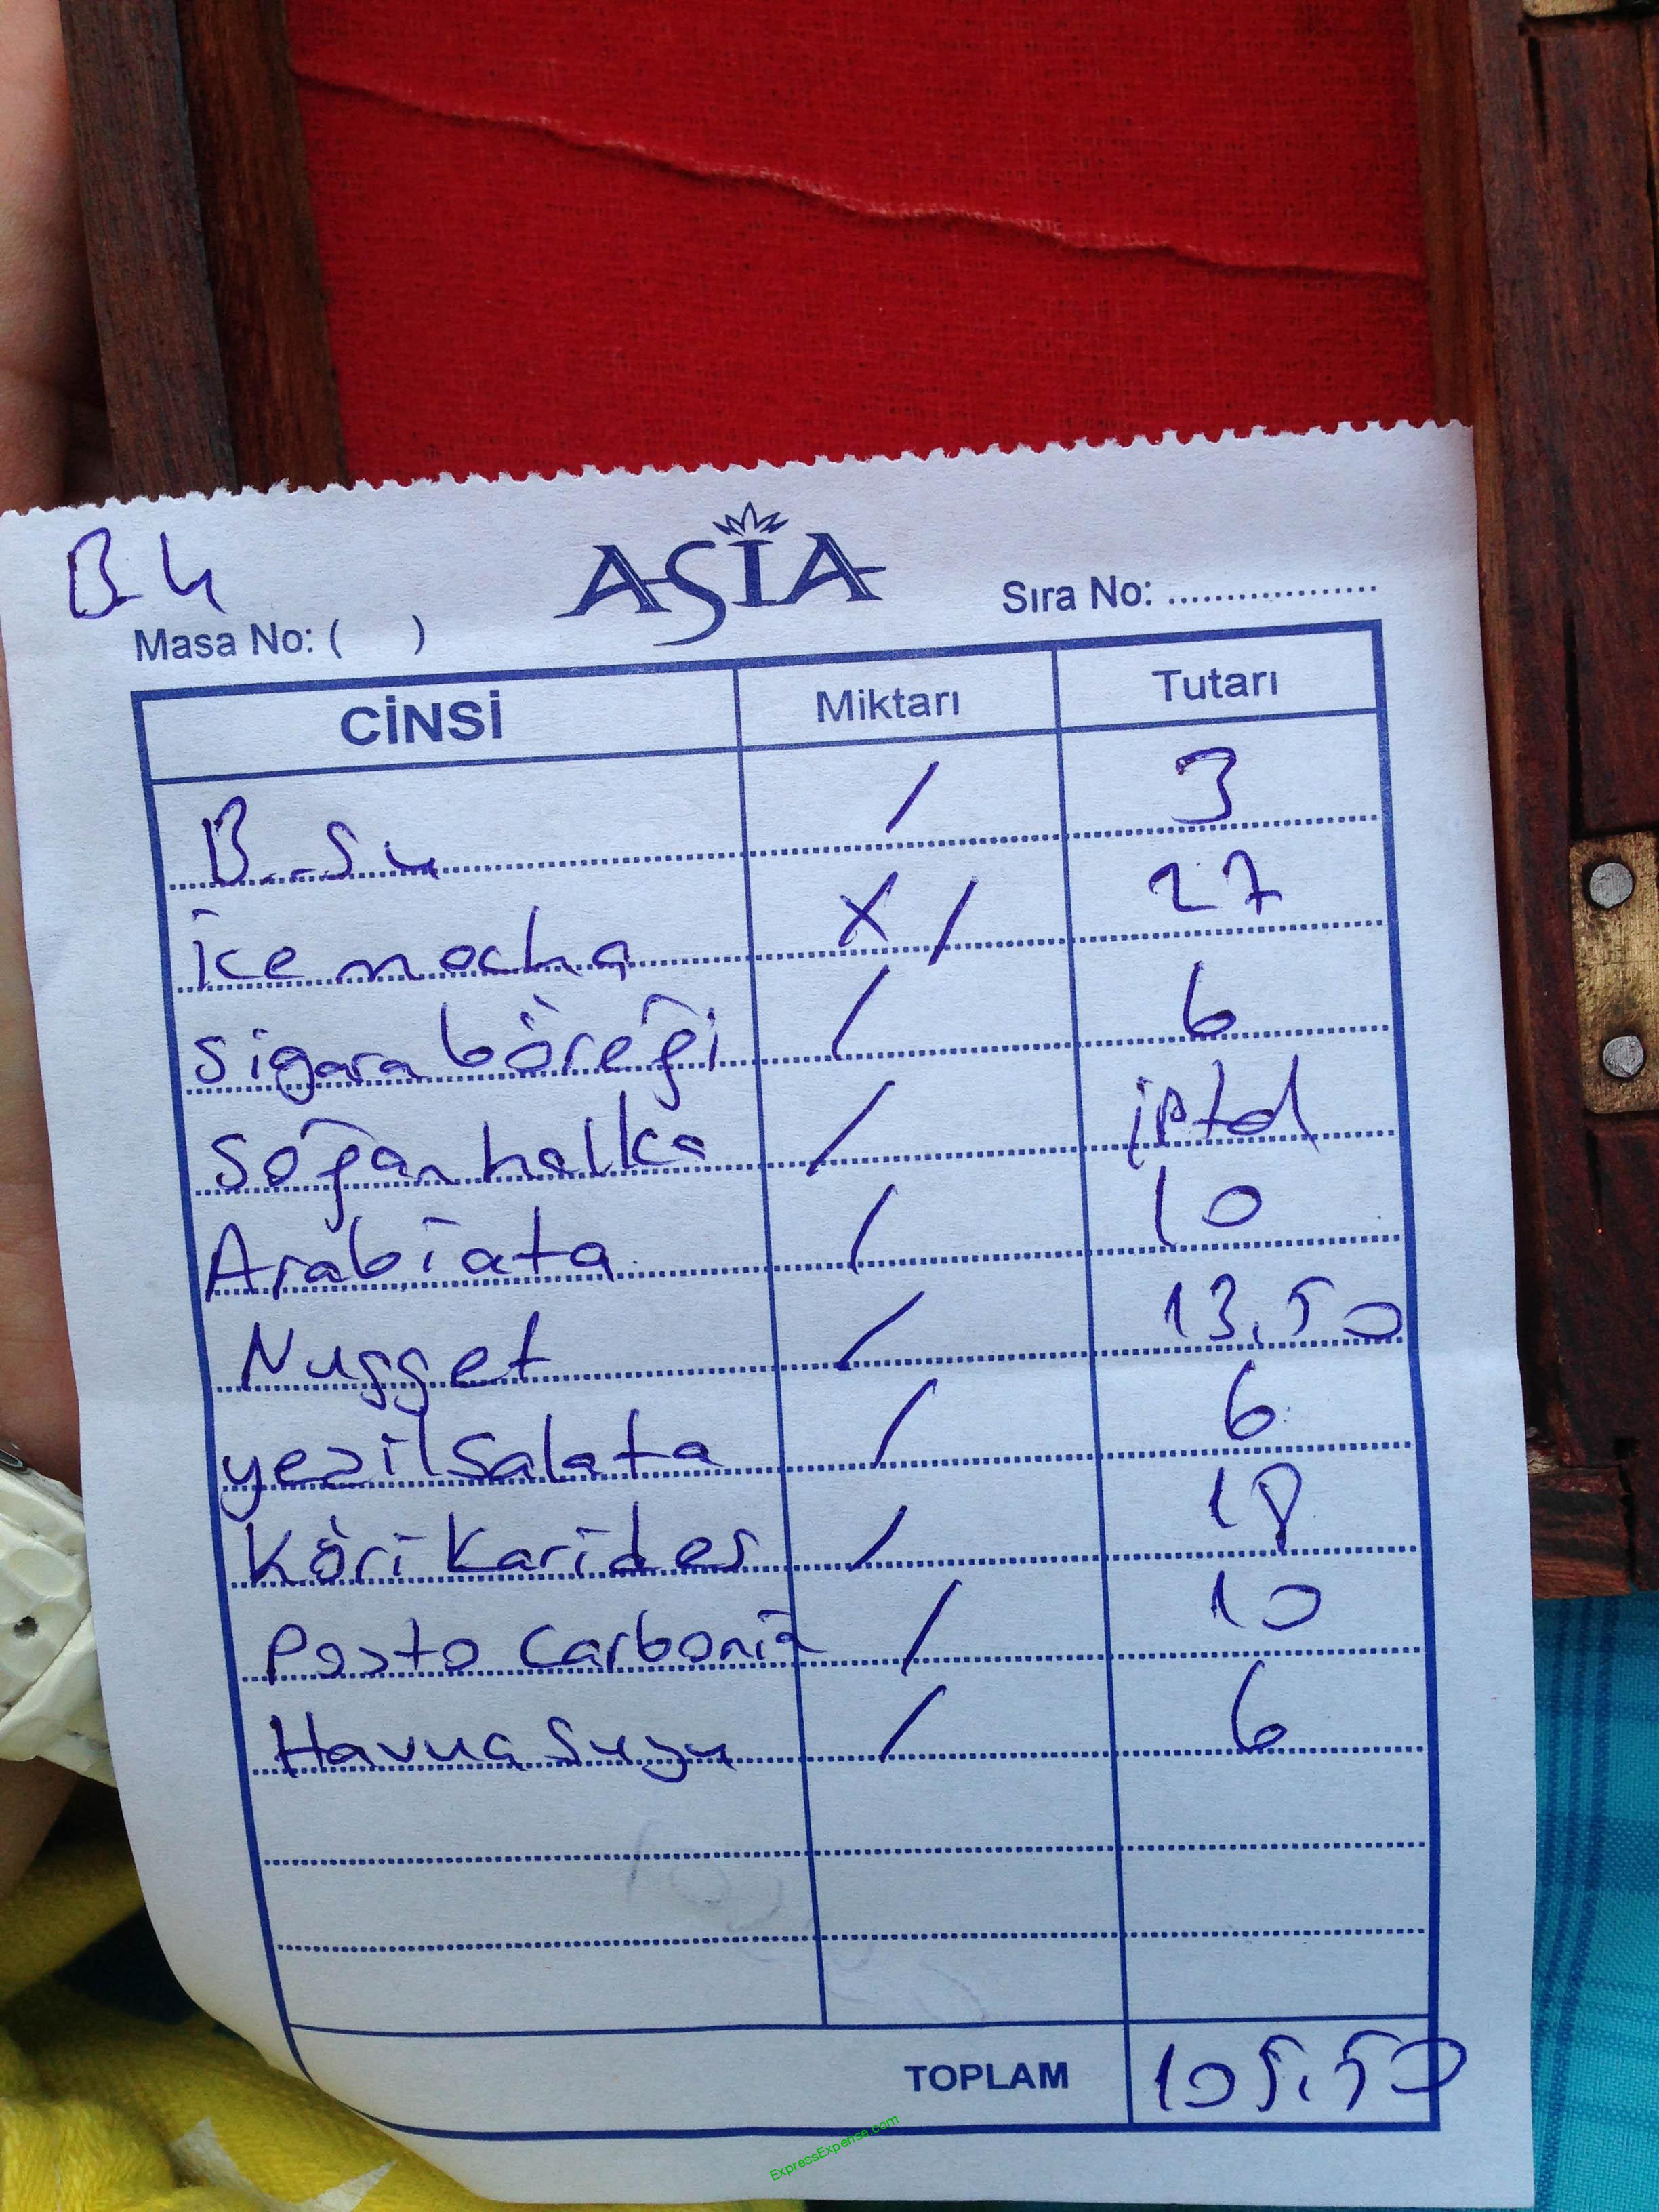 B-4
ASİA
Masa No: ( ) Sıra No: ..................
CİNSİ Miktarı Tutarı
B..Su / 3
ice mocha X / 27
sigara böreği / 6
soğan halka / iptal
Arabiata / 10
Nugget / 13.50
yeşil salata / 6
Köri Karides / 18
Pasta Carbonia / 10
Havuç Suyu / 6
TOPLAM 105.50
ExpressExpense.com